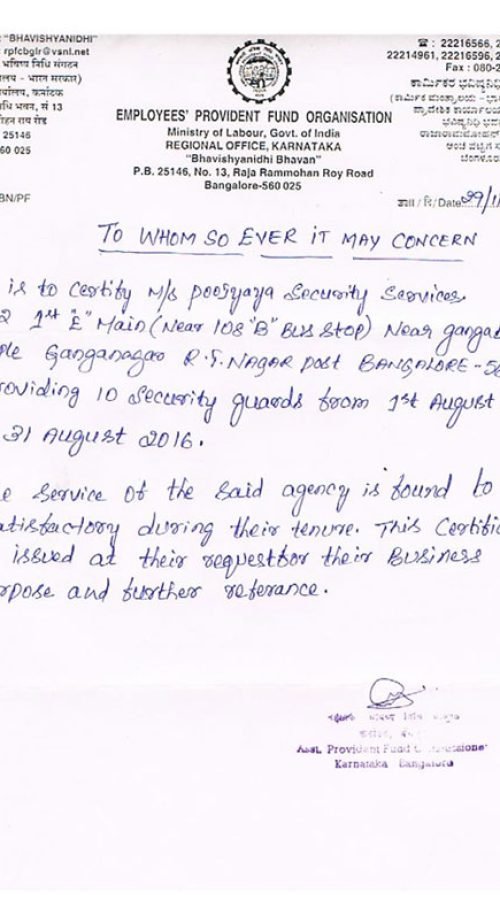 : "BHAVISHYANIDHI"
: rpfcbglr@vsnl.net
भविष्य निधि संगठन
लय - भारत सरकार)
र्यालय, कर्नाटक
धि भवन, सं 13
मोहन राय रोड
25146
60 025
BN/PF
EMPLOYEES' PROVIDENT FUND ORGANISATION
Ministry of Labour, Govt. of India
REGIONAL OFFICE, KARNATAKA
"Bhavishyanidhi Bhavan"
P.B. 25146, No. 13, Raja Rammohan Roy Road
Bangalore-560 025
☎ : 22216566, 2
22214961, 22216596, 2
Fax : 080-2
ಕಾರ್ಮಿಕರ ಭವಿಷ್ಯನಿಧಿ
(ಕಾರ್ಮಿಕ ಮಂತ್ರಾಲಯ - ಭಾ
ಪ್ರಾದೇಶಿಕ ಕಾರ್ಯಾಲಯ
ಭವಿಷ್ಯನಿಧಿ ಭವ
ರಾಜಾರಾಮಮೋಹನ್
ಅಂಚೆ ಪೆಟ್ಟಿಗೆ ಸಂ
ಬೆಂಗಳೂರು
/ दि/Date 29/1
TO WHOM SO EVER IT MAY CONCERN
is to Certify M/s poorjyaya Security Services
2 1st "E" Main (Near 108 "B" BUS STOP) Near gangab
ple Ganganagar R.T. NAGAR post BANGALORE - 56
roviding 10 Security guards from 1st August
31 August 2016.
e Service of the Said agency is found to
atisfactory during their tenure. This Certific
issued at their request for their Business
rpose and further referance.
Asst. Provident Fund
Karnataka Bangalore